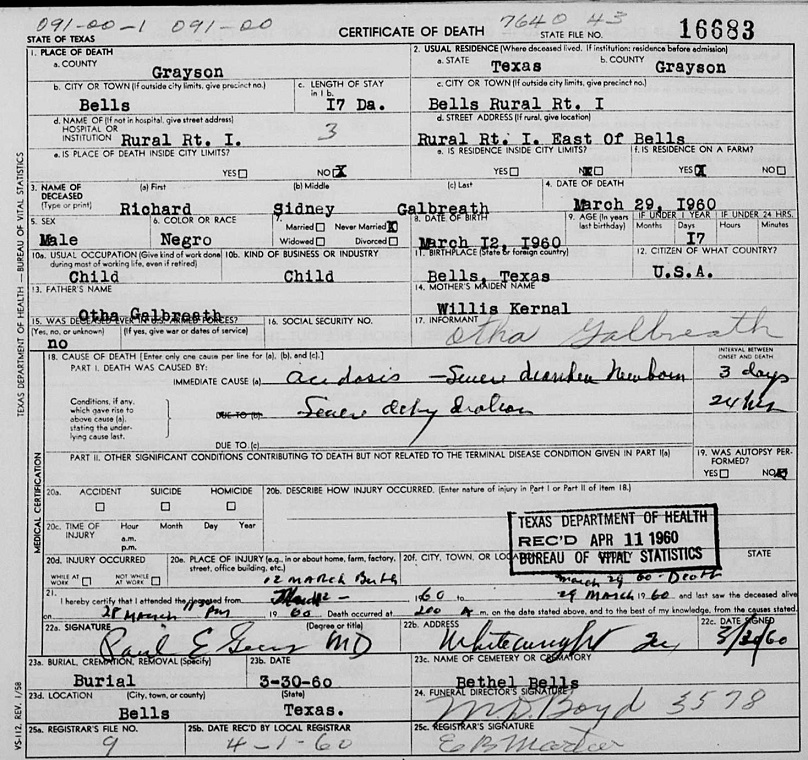 091-00-1 091-00 7640 43
STATE OF TEXAS CERTIFICATE OF DEATH STATE FILE NO. 16683
1. PLACE OF DEATH 2. USUAL RESIDENCE (Where deceased lived. If institution: residence before admission)
a. COUNTY Grayson a. STATE Texas b. COUNTY Grayson
b. CITY OR TOWN (If outside city limits, give precinct no.) c. LENGTH OF STAY in 1 b. c. CITY OR TOWN (If outside city limits, give precinct no.)
Bells I7 Da. Bells Rural Rt. I
d. NAME OF (If not in hospital, give street address) HOSPITAL OR INSTITUTION d. STREET ADDRESS (If rural, give location)
Rural Rt. I. 3 Rural Rt. I. East Of Bells
e. IS PLACE OF DEATH INSIDE CITY LIMITS? e. IS RESIDENCE INSIDE CITY LIMITS? f. IS RESIDENCE ON A FARM?
YES NO X YES NO X YES X NO
3. NAME OF DECEASED (Type or print) (a) First (b) Middle (c) Last 4. DATE OF DEATH
Richard Sidney Galbreath March 29, I960
5. SEX 6. COLOR OR RACE 7. Married Never Married X Widowed Divorced 8. DATE OF BIRTH 9. AGE (In years last birthday) IF UNDER 1 YEAR IF UNDER 24 HRS.
Months Days Hours Minutes
Male Negro March I2, I960 I7
10a. USUAL OCCUPATION (Give kind of work done during most of working life, even if retired) 10b. KIND OF BUSINESS OR INDUSTRY 11. BIRTHPLACE (State or foreign country) 12. CITIZEN OF WHAT COUNTRY?
Child Child Bells, Texas U.S.A.
13. FATHER'S NAME 14. MOTHER'S MAIDEN NAME
Otha Galbreath Willis Kernal
15. WAS DECEASED EVER IN U.S. ARMED FORCES? 16. SOCIAL SECURITY NO. 17. INFORMANT
(Yes, no, or unknown) (If yes, give war or dates of service) Otha Galbreath
no
18. CAUSE OF DEATH [Enter only one cause per line for (a), (b), and (c).] INTERVAL BETWEEN ONSET AND DEATH
PART I. DEATH WAS CAUSED BY:
IMMEDIATE CAUSE (a) acidosis - Severe diarrhea Newborn 3 days
Conditions, if any, which gave rise to above cause (a), stating the underlying cause last. DUE TO (b) Severe dehydration 24 hrs
DUE TO (c)
PART II. OTHER SIGNIFICANT CONDITIONS CONTRIBUTING TO DEATH BUT NOT RELATED TO THE TERMINAL DISEASE CONDITION GIVEN IN PART I(a) 19. WAS AUTOPSY PERFORMED?
YES NO
20a. ACCIDENT SUICIDE HOMICIDE 20b. DESCRIBE HOW INJURY OCCURRED. (Enter nature of injury in Part I or Part II of item 18.)
20c. TIME OF INJURY Hour Month Day Year
a.m.
p.m.
TEXAS DEPARTMENT OF HEALTH
REC'D APR 11 1960
BUREAU OF VITAL STATISTICS
20d. INJURY OCCURRED 20e. PLACE OF INJURY (e.g., in or about home, farm, factory, street, office building, etc.) 20f. CITY, TOWN, OR STATE
WHILE AT WORK NOT WHILE AT WORK 12 MARCH Birth March 29 60 - Death
21. I hereby certify that I attended the deceased from 1960 to 29 MARCH 1960 and last saw the deceased alive
on 28 MARCH PM 1960 Death occurred at 200 A m. on the date stated above, and to the best of my knowledge, from the causes stated.
22a. SIGNATURE (Degree or title) 22b. ADDRESS 22c. DATE SIGNED
Paul E MD Whitewright Tex 3/30/60
23a. BURIAL, CREMATION, REMOVAL (Specify) 23b. DATE 23c. NAME OF CEMETERY OR CREMATORY
Burial 3-30-60 Bethel Bells
23d. LOCATION (City, town, or county) (State) 24. FUNERAL DIRECTOR'S SIGNATURE
Bells Texas. Boyd 3578
25a. REGISTRAR'S FILE NO. 25b. DATE REC'D BY LOCAL REGISTRAR 25c. REGISTRAR'S SIGNATURE
9 4-1-60 E B
TEXAS DEPARTMENT OF HEALTH — BUREAU OF VITAL STATISTICS
MEDICAL CERTIFICATION
VS-112, REV. 1/58